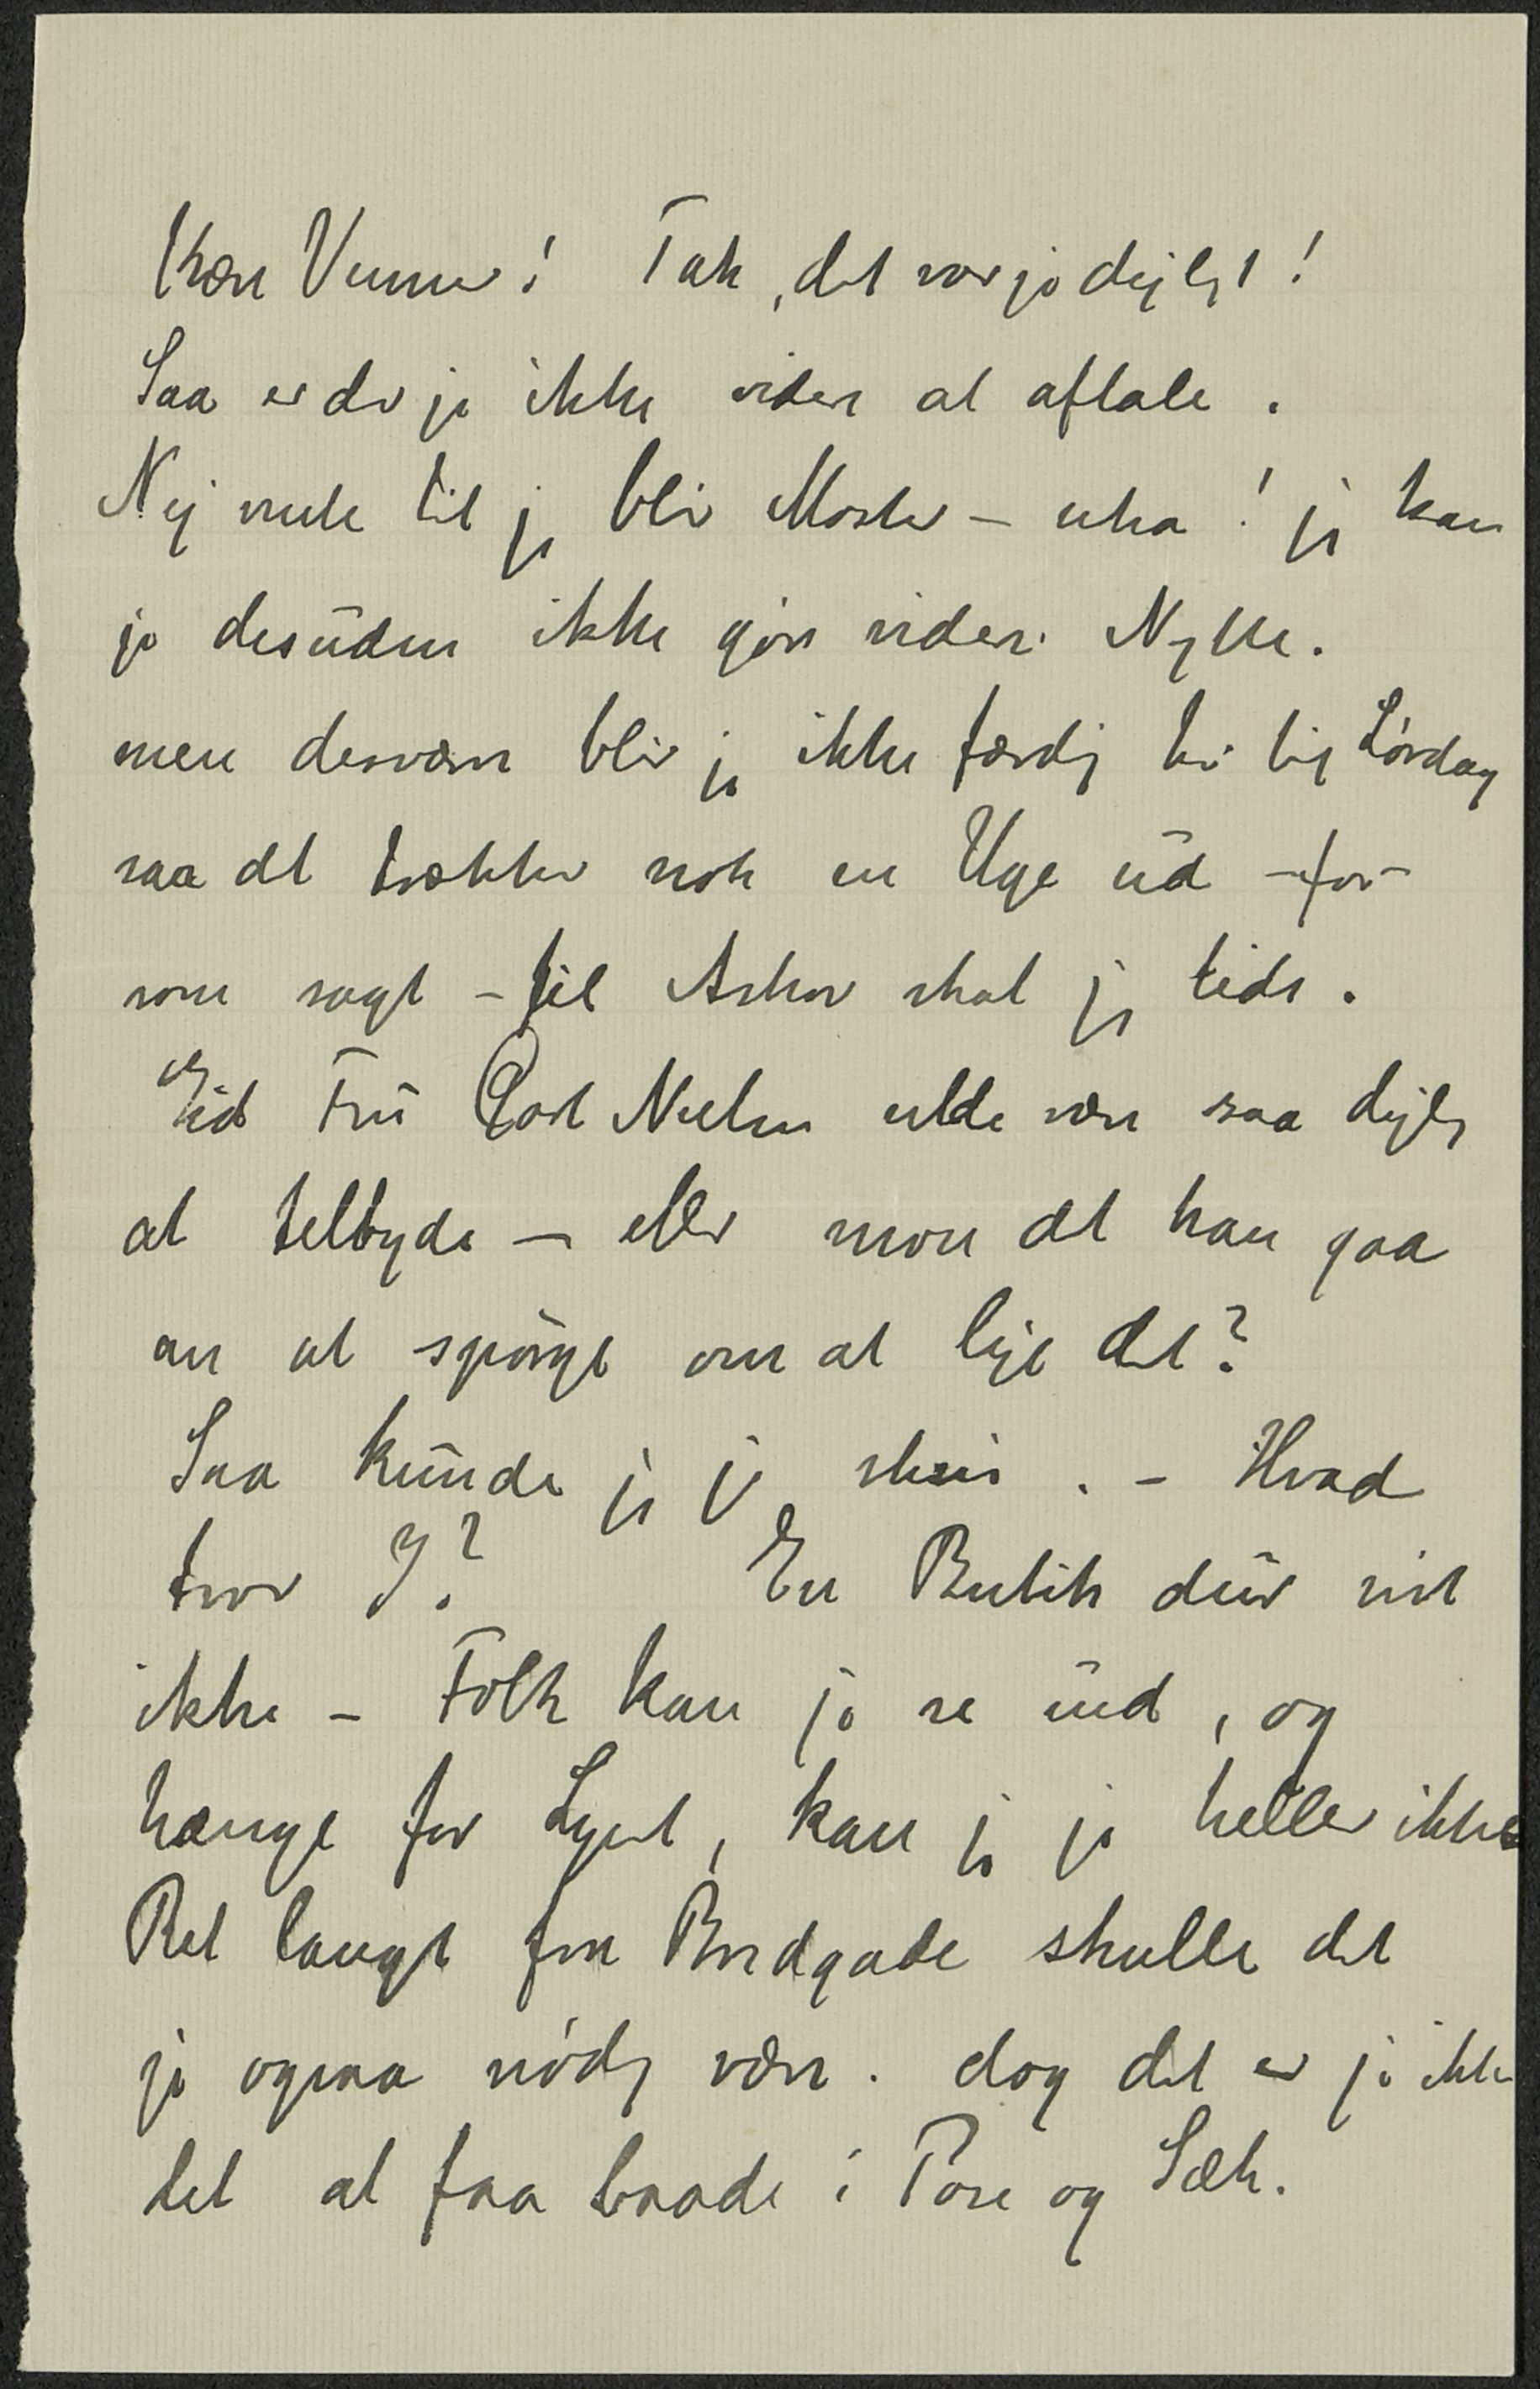 Kære Venner! Tak, det var jo dejligt!
Saa er der jo ikke videre at aftale.
Nej vente til jeg blir Moster – uha! jeg kan
jo desuden ikke gøre videre Nytte.
men desværre blir jeg ikke færdig til Lørdag
saa det trækker nok en Uge ud – for
som sagt – til Askov skal jeg tids.
Gid Fru Carl Nielsen vilde være saa dejlig
at tilbyde – eller mon det kan gaa
an at spørge om at leje det?
Saa kunde jeg jo . – Hvad
tror I? En Butik dur vist
ikke – Folk kan jo se ind, og
hænge for Lyset, kan jeg jo heller ikke
Ret langt fra Bredgade skulle det
jo ogsaa nødig være. dog det er jo ikke
let at faa baade i Pose og Sæk.